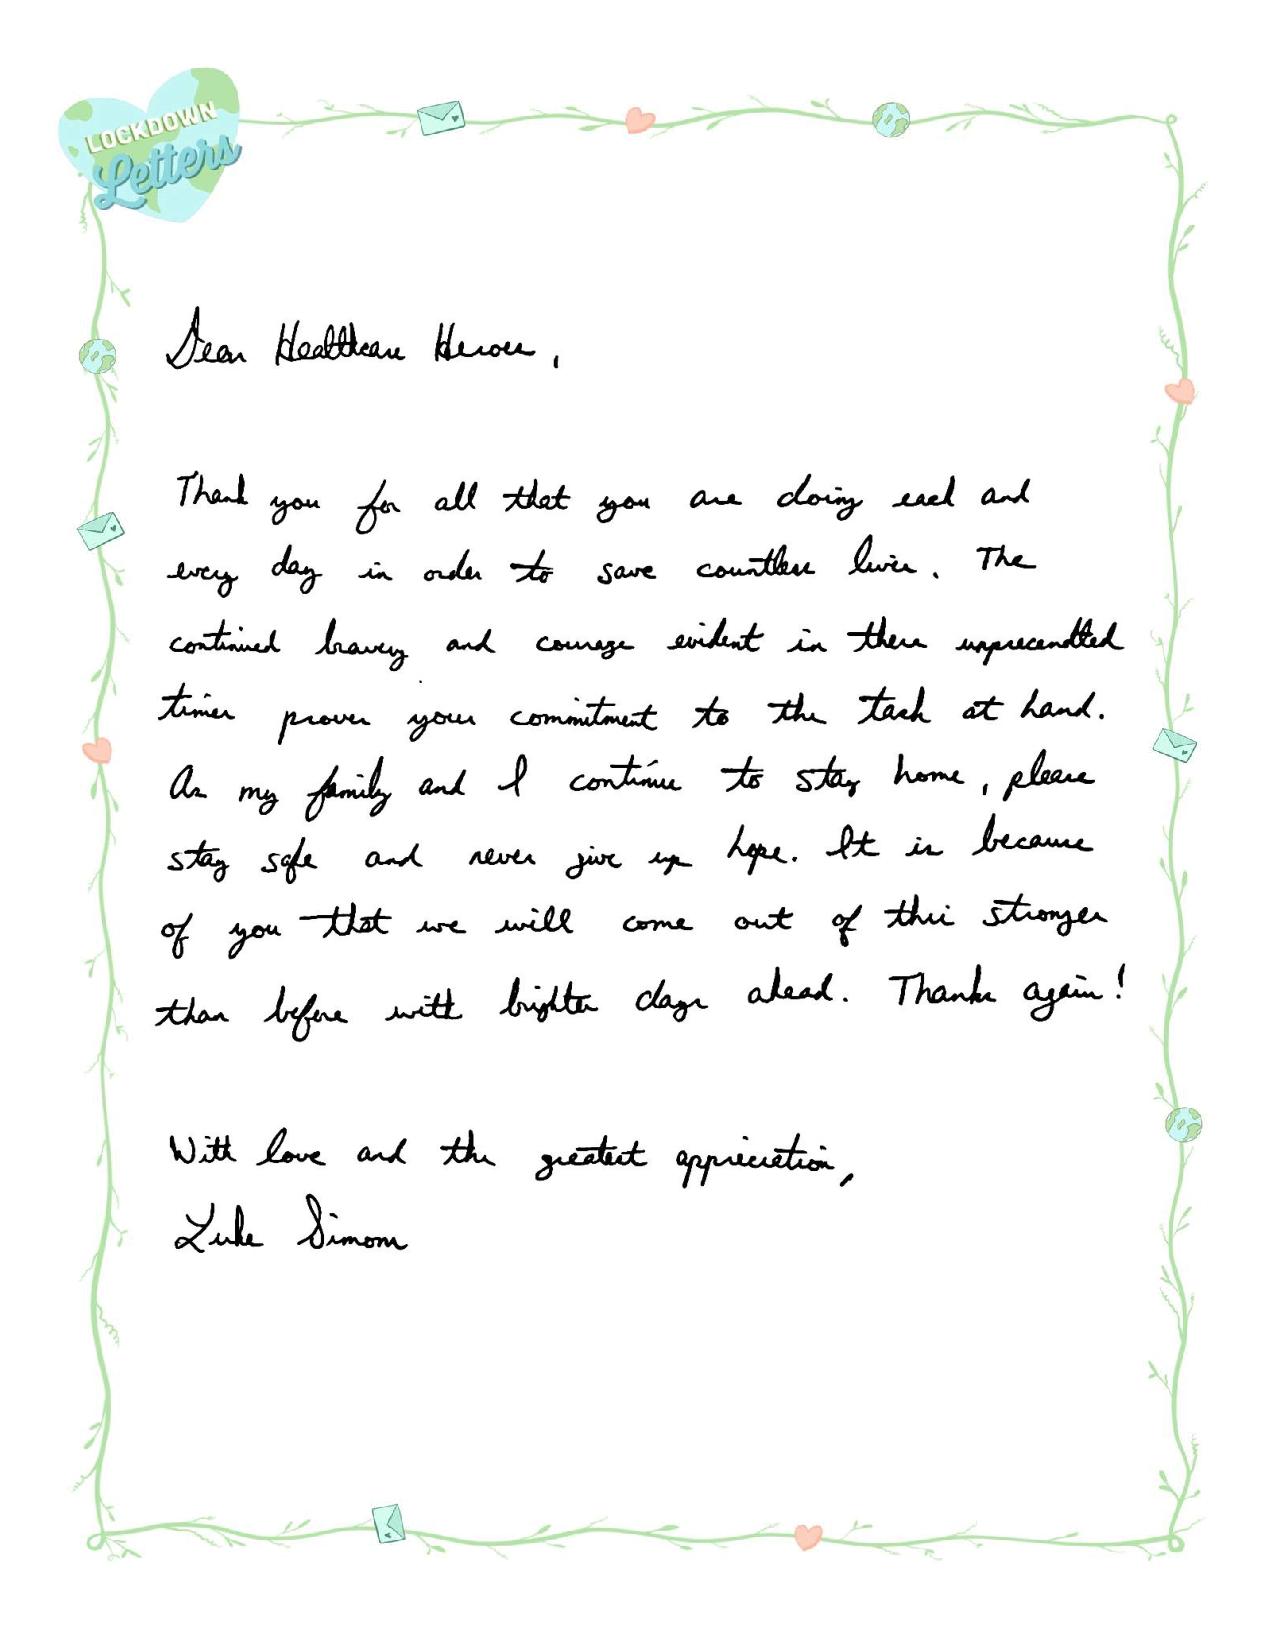 LOCKDOWN
Letters
Dear Healthcare Heroes,
Thank you for all that you are doing each and
every day in order to save countless lives. The
continued bravery and courage evident in these unprecendted
times proves your commitment to the task at hand.
As my family and I continue to stay home, please
stay safe and never give up hope. It is because
of you that we will come out of this stronger
than before with brighter days ahead. Thanks again!
With love and the greatest appreciation,
Luke Simon